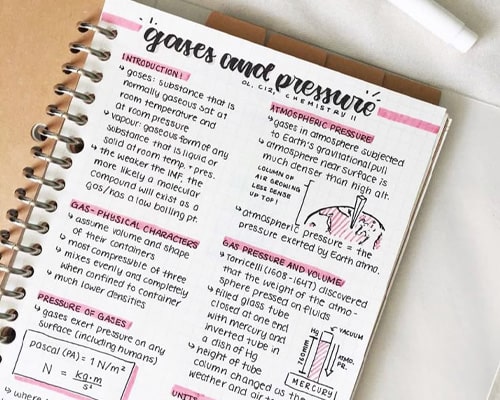 gases and pressure
OL. C12, CHEMISTRY 11
INTRODUCTION:
↳ gases: substance that is
normally gaseous sat at
room temperature and
at room pressure
↳ vapour: gaseous form of any
substance that is liquid or
solid at room temp. + pres.
↳ the weaker the IMF, the
more likely a molecular
compound will exist as a
gas/has a low boiling pt.
GAS- PHYSICAL CHARACTERS
↳ assume volume and shape
of their containers
↳ most compressible of three
↳ mixes evenly and completely
when confined to container
↳ much lower densities
PRESSURE OF GASES
↳ gases exert pressure on any
surface (including humans)
pascal (PA) = 1 N/m²
N = kg·m
s²
↳ where
ATMOSPHERIC PRESSURE
↳ gases in atmosphere subjected
to Earth's gravitational pull
↳ atmosphere near surface is
much denser than high alt.
COLUMN OF
AIR GROWING
LESS DENSE
UP TOP!
↳ atmospheric pressure = the
pressure exerted by Earth atmo.
GAS PRESSURE AND VOLUME
↳ Torricelli (1608-1647) discovered
that the weight of the atmo-
sphere pressed on fluids
↳ filled glass tube
closed at one end
with mercury and
inverted tube in
a dish of Hg
↳ height of tube
column changed as the
weather and air
Hg
VACUUM
760mm
ATMO.
PR.
MERCURY
UNITS